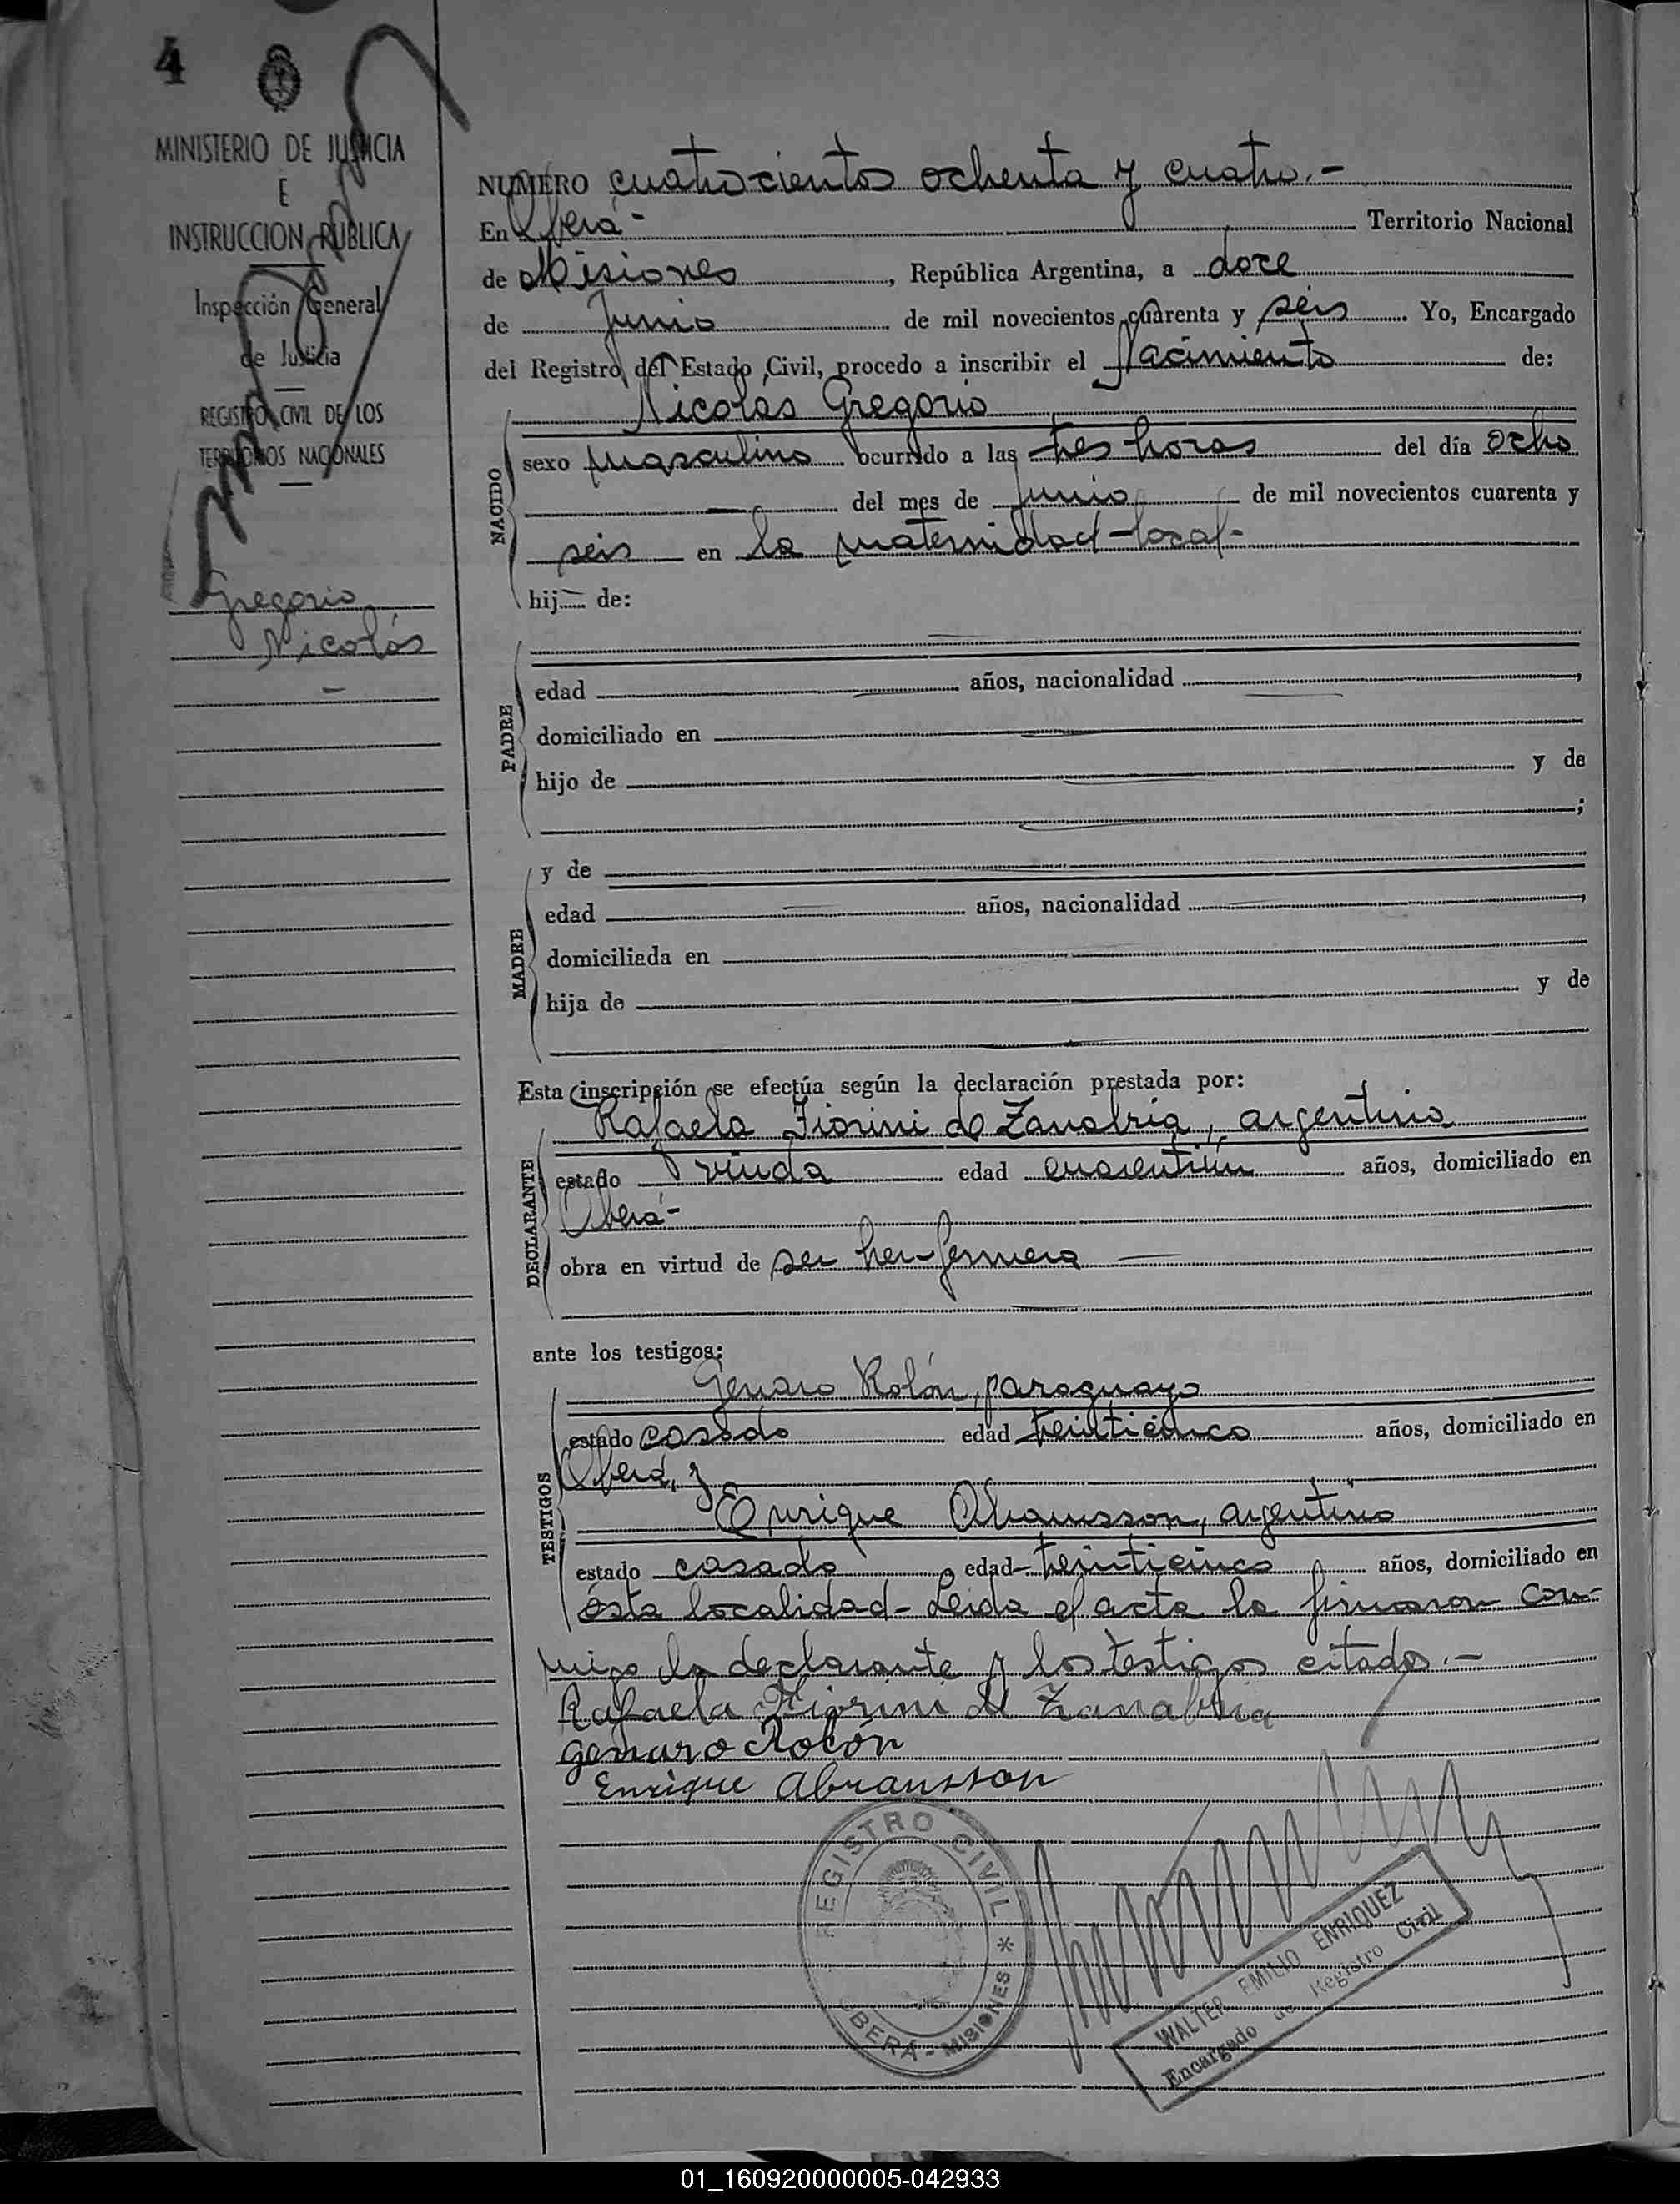 4
MINISTERIO DE JUSTICIA
E
INSTRUCCION PUBLICA
Inspección General
de Justicia
REGISTRO CIVIL DE LOS
TERRITORIOS NACIONALES
Gregorio
Nicolás
NUMERO cuatrocientos ochenta y cuatro.-
En Oberá- Territorio Nacional
de Misiones, República Argentina, a doce
de Junio de mil novecientos cuarenta y seis. Yo, Encargado
del Registro del Estado Civil, procedo a inscribir el Nacimiento de:
Nicolas Gregorio
NACIDO
sexo masculino ocurrido a las tres horas del día ocho
del mes de Junio de mil novecientos cuarenta y
seis en la maternidad-local-
hij de:
PADRE
edad años, nacionalidad ,
domiciliado en
hijo de y de
;
MADRE
y de
edad años, nacionalidad ,
domiciliada en
hija de y de
Esta inscripción se efectúa según la declaración prestada por:
Rafaela Fiorini de Zanabria, argentina
DECLARANTE
estado viuda edad cuarentiún años, domiciliado en
Oberá-
obra en virtud de ser her-fermera
ante los testigos:
Genaro Rolón, paraguayo
TESTIGOS
estado casado edad treinticinco años, domiciliado en
Oberá, y
Enrique Abramsson, argentino
estado casado edad treinticinco años, domiciliado en
ésta localidad- Leida el acta la firmaron con-
migo la declarante y los testigos citados.-
Rafaela Fiorini de Zanabria
genaro Rolón
Enrique Abransson
REGISTRO CIVIL *
OBERÁ - MISIONES
WALTER EMILIO ENRIQUEZ
Encargado de Registro Civil
01_160920000005-042933